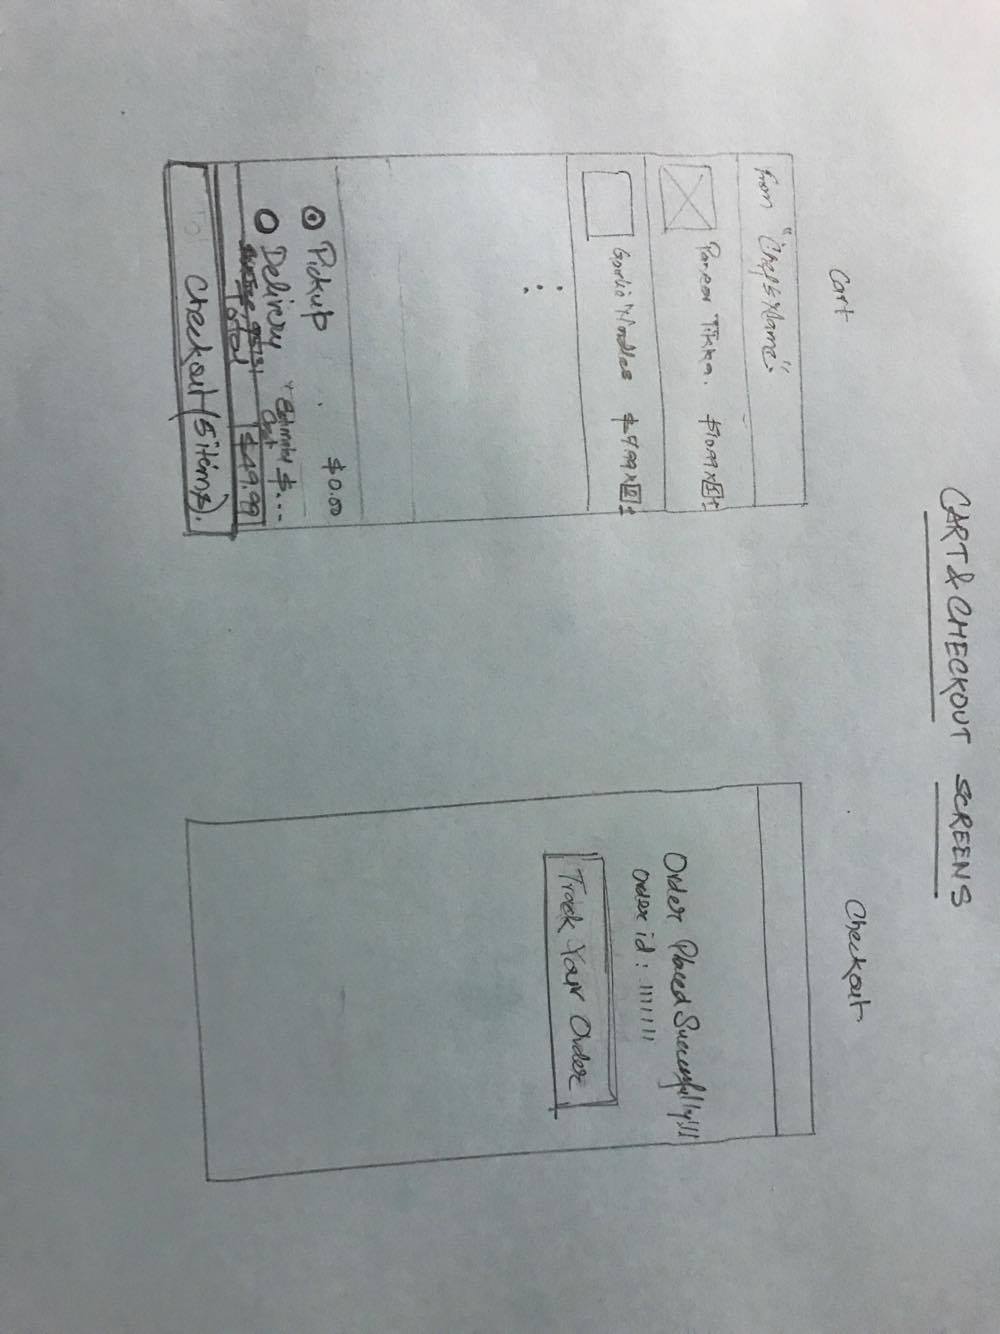 CART & CHECKOUT SCREENS
Cart
From "Chef's Name"
Paneer Tikka. $10.99 x
Garlic Noodles $9.99 x
Pickup $0.00
Delivery * Estimated $...
Cost
Total $49.99
Checkout (5 items).
Checkout
Order Placed Successfully!!!
Order id : 1111111
Track Your Order